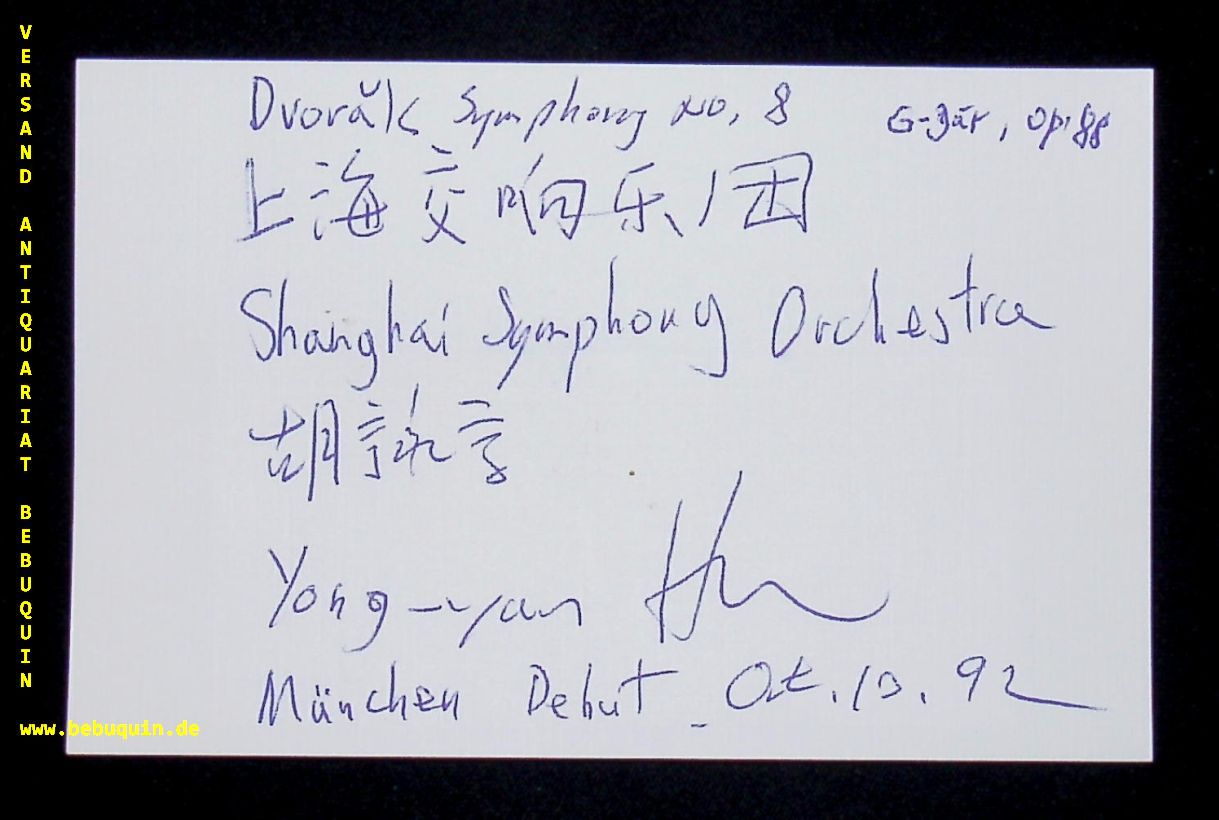 VERSAND ANTIQUARIAT BEBUQUIN
www.bebuquin.de
Dvořák Symphony No. 8 G-Dur, Op. 88
上海交响乐团
Shanghai Symphony Orchestra
胡詠言
Yong-yan Hu
München Debut - Okt. 13. 92